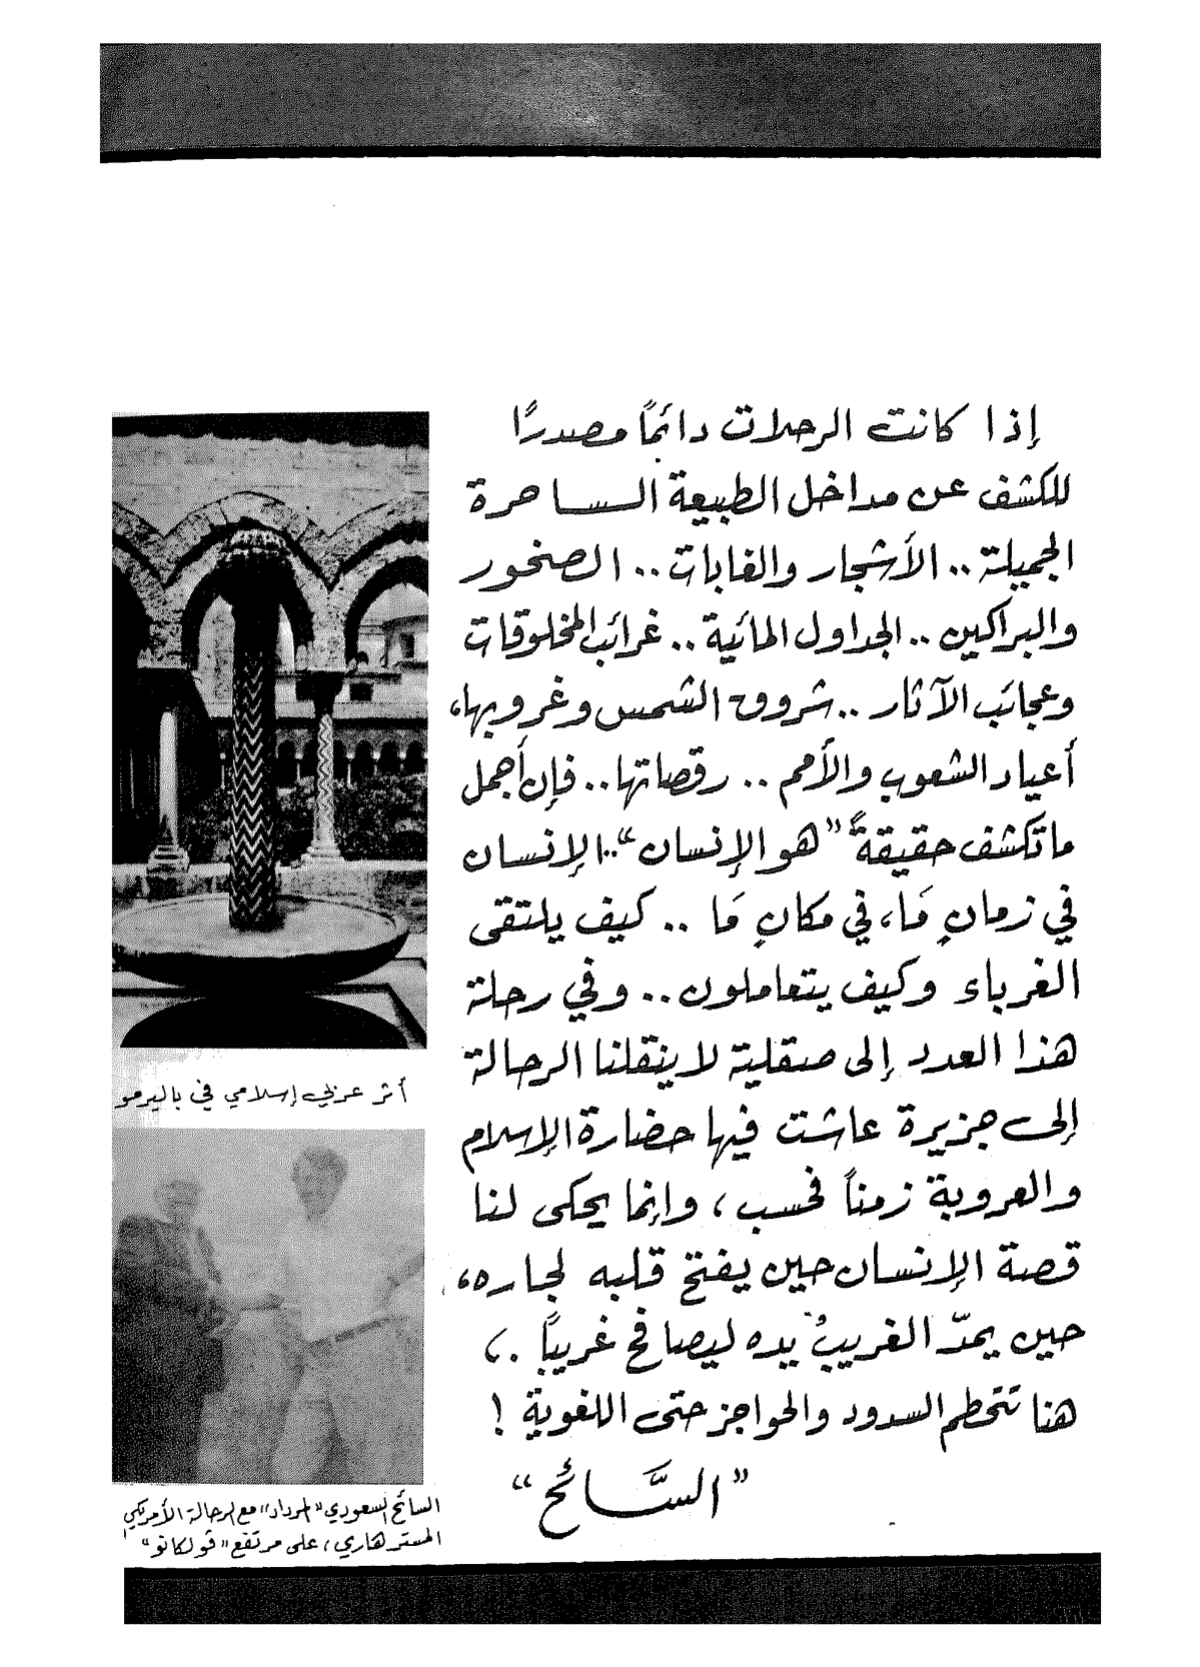 إذا كانت الرحلات دائماً مصدرًا
للكشف عن مداخل الطبيعة الساحرة
الجميلة .. الأشجار والغابات .. الصخور
والبراكين .. الجداول المائية .. غرائب المخلوقات
وعجائب الآثار .. شروق الشمس وغروبها،
أعياد الشعوب والأمم .. رقصاتها .. فإن أجمل
ما تكشف حقيقةً "هو الإنسان" .. الإنسان
في زمانٍ مَا، في مكانٍ مَا .. كيف يلتقى
الغرباء وكيف يتعاملون .. وفي رحلة
هذا العدد إلى صقلية لا ينقلنا الرحالة
إلى جزيرة عاشت فيها حضارة الإسلام
والعروبة زمناً فحسب، وإنما يحكى لنا
قصة الإنسان حين يفتح قلبه لجاره،
حين يمدّ الغريبُ يده ليصافح غريباً .،
هنا تتحطم السدود والحواجز حتى اللغوية !
"السَّائح"
أثر عربي إسلامي في باليرمو
السائح السعودي "المرداد" مع الرحالة الأمريكي
المستر هاري، على مرتفع "فولكانو"